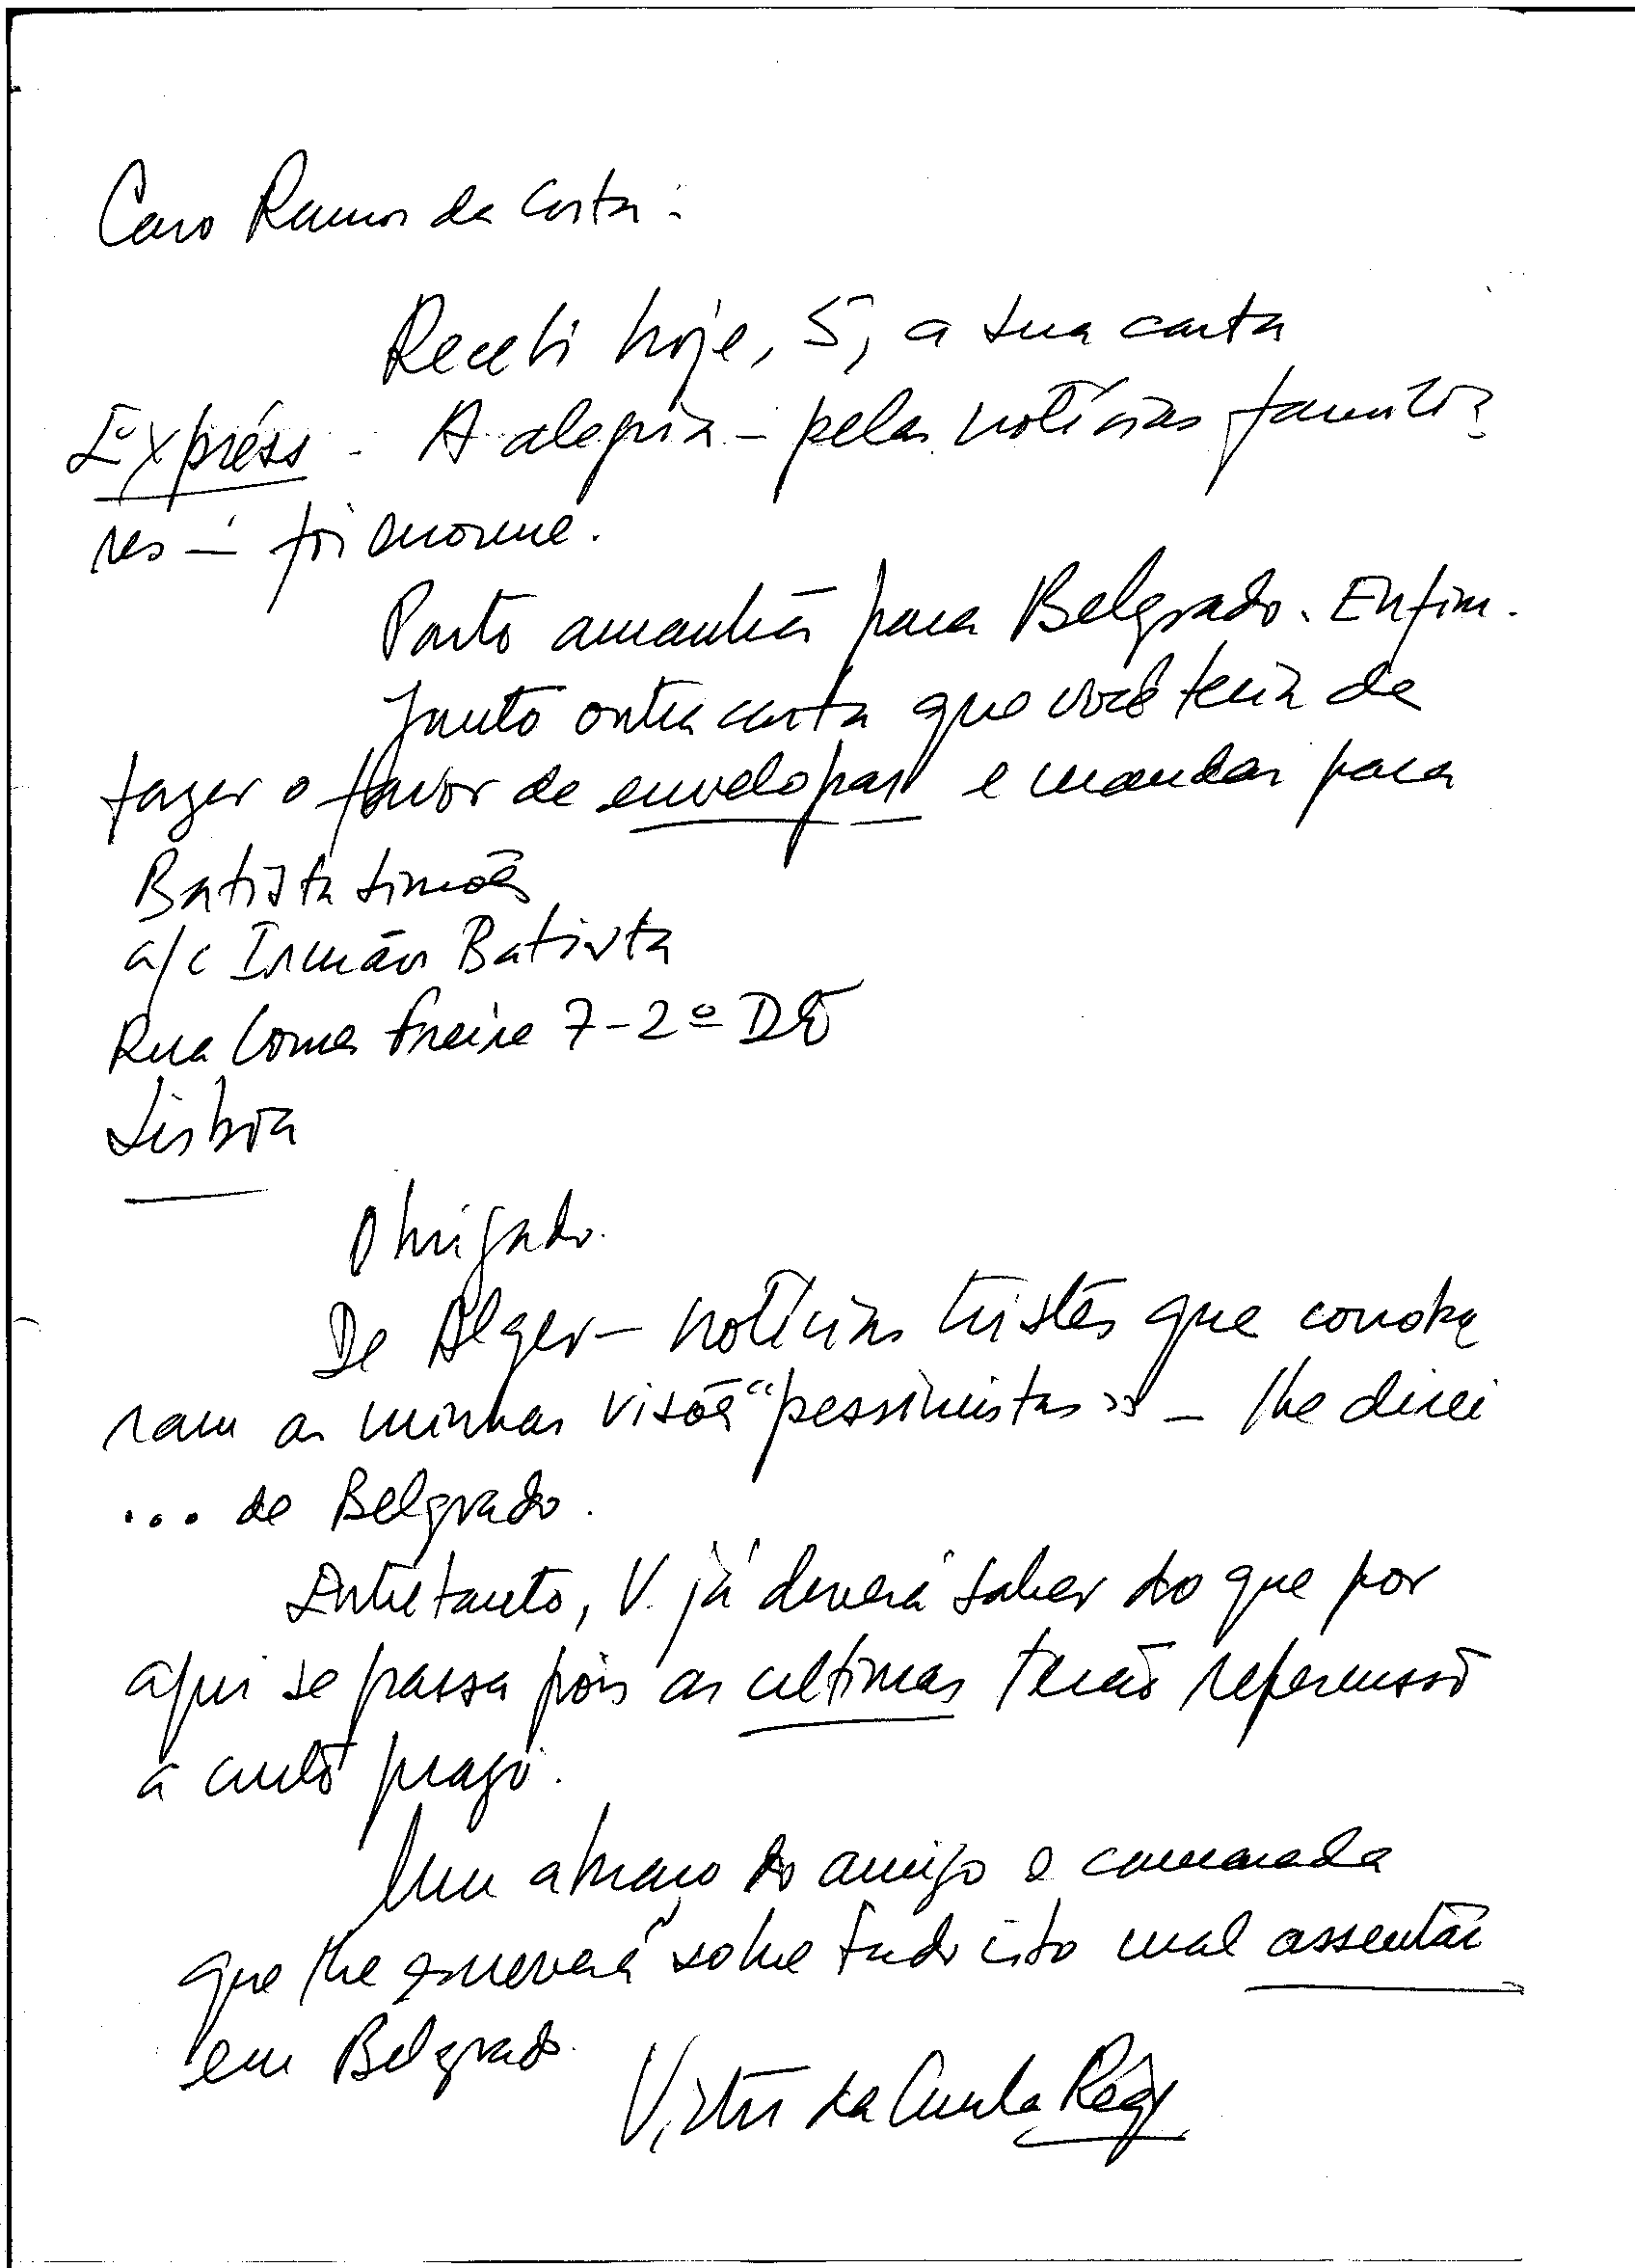 Caro Ramos da Costa:
Recebi hoje, 5, a sua carta
Expréss. A alegria – pelas notícias familia
res – foi enorme.
Parto amanhã para Belgrado. Enfim.
Junto outra carta que você teria de
fazer o favor de envelopar e mandar para
Batista Simões
a/c Irmãos Batista
Rua Gomes Freire 7-2º Dtº
Lisboa
Obrigado.
De Alger – notícias tristes que corrobo
ram as minhas visões "pessimistas" – lhe direi
... de Belgrado.
Entretanto, V. já deverá saber do que por
aqui se passa pois as ultimas terão repercussão
a curto prazo.
Um abraço do amigo e camarada
que lhe escreverá sobre tudo isto mal assentar
em Belgrado.
Victor da Cunha Rêgo